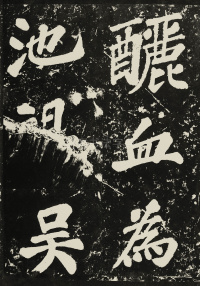 釃血為
池吳